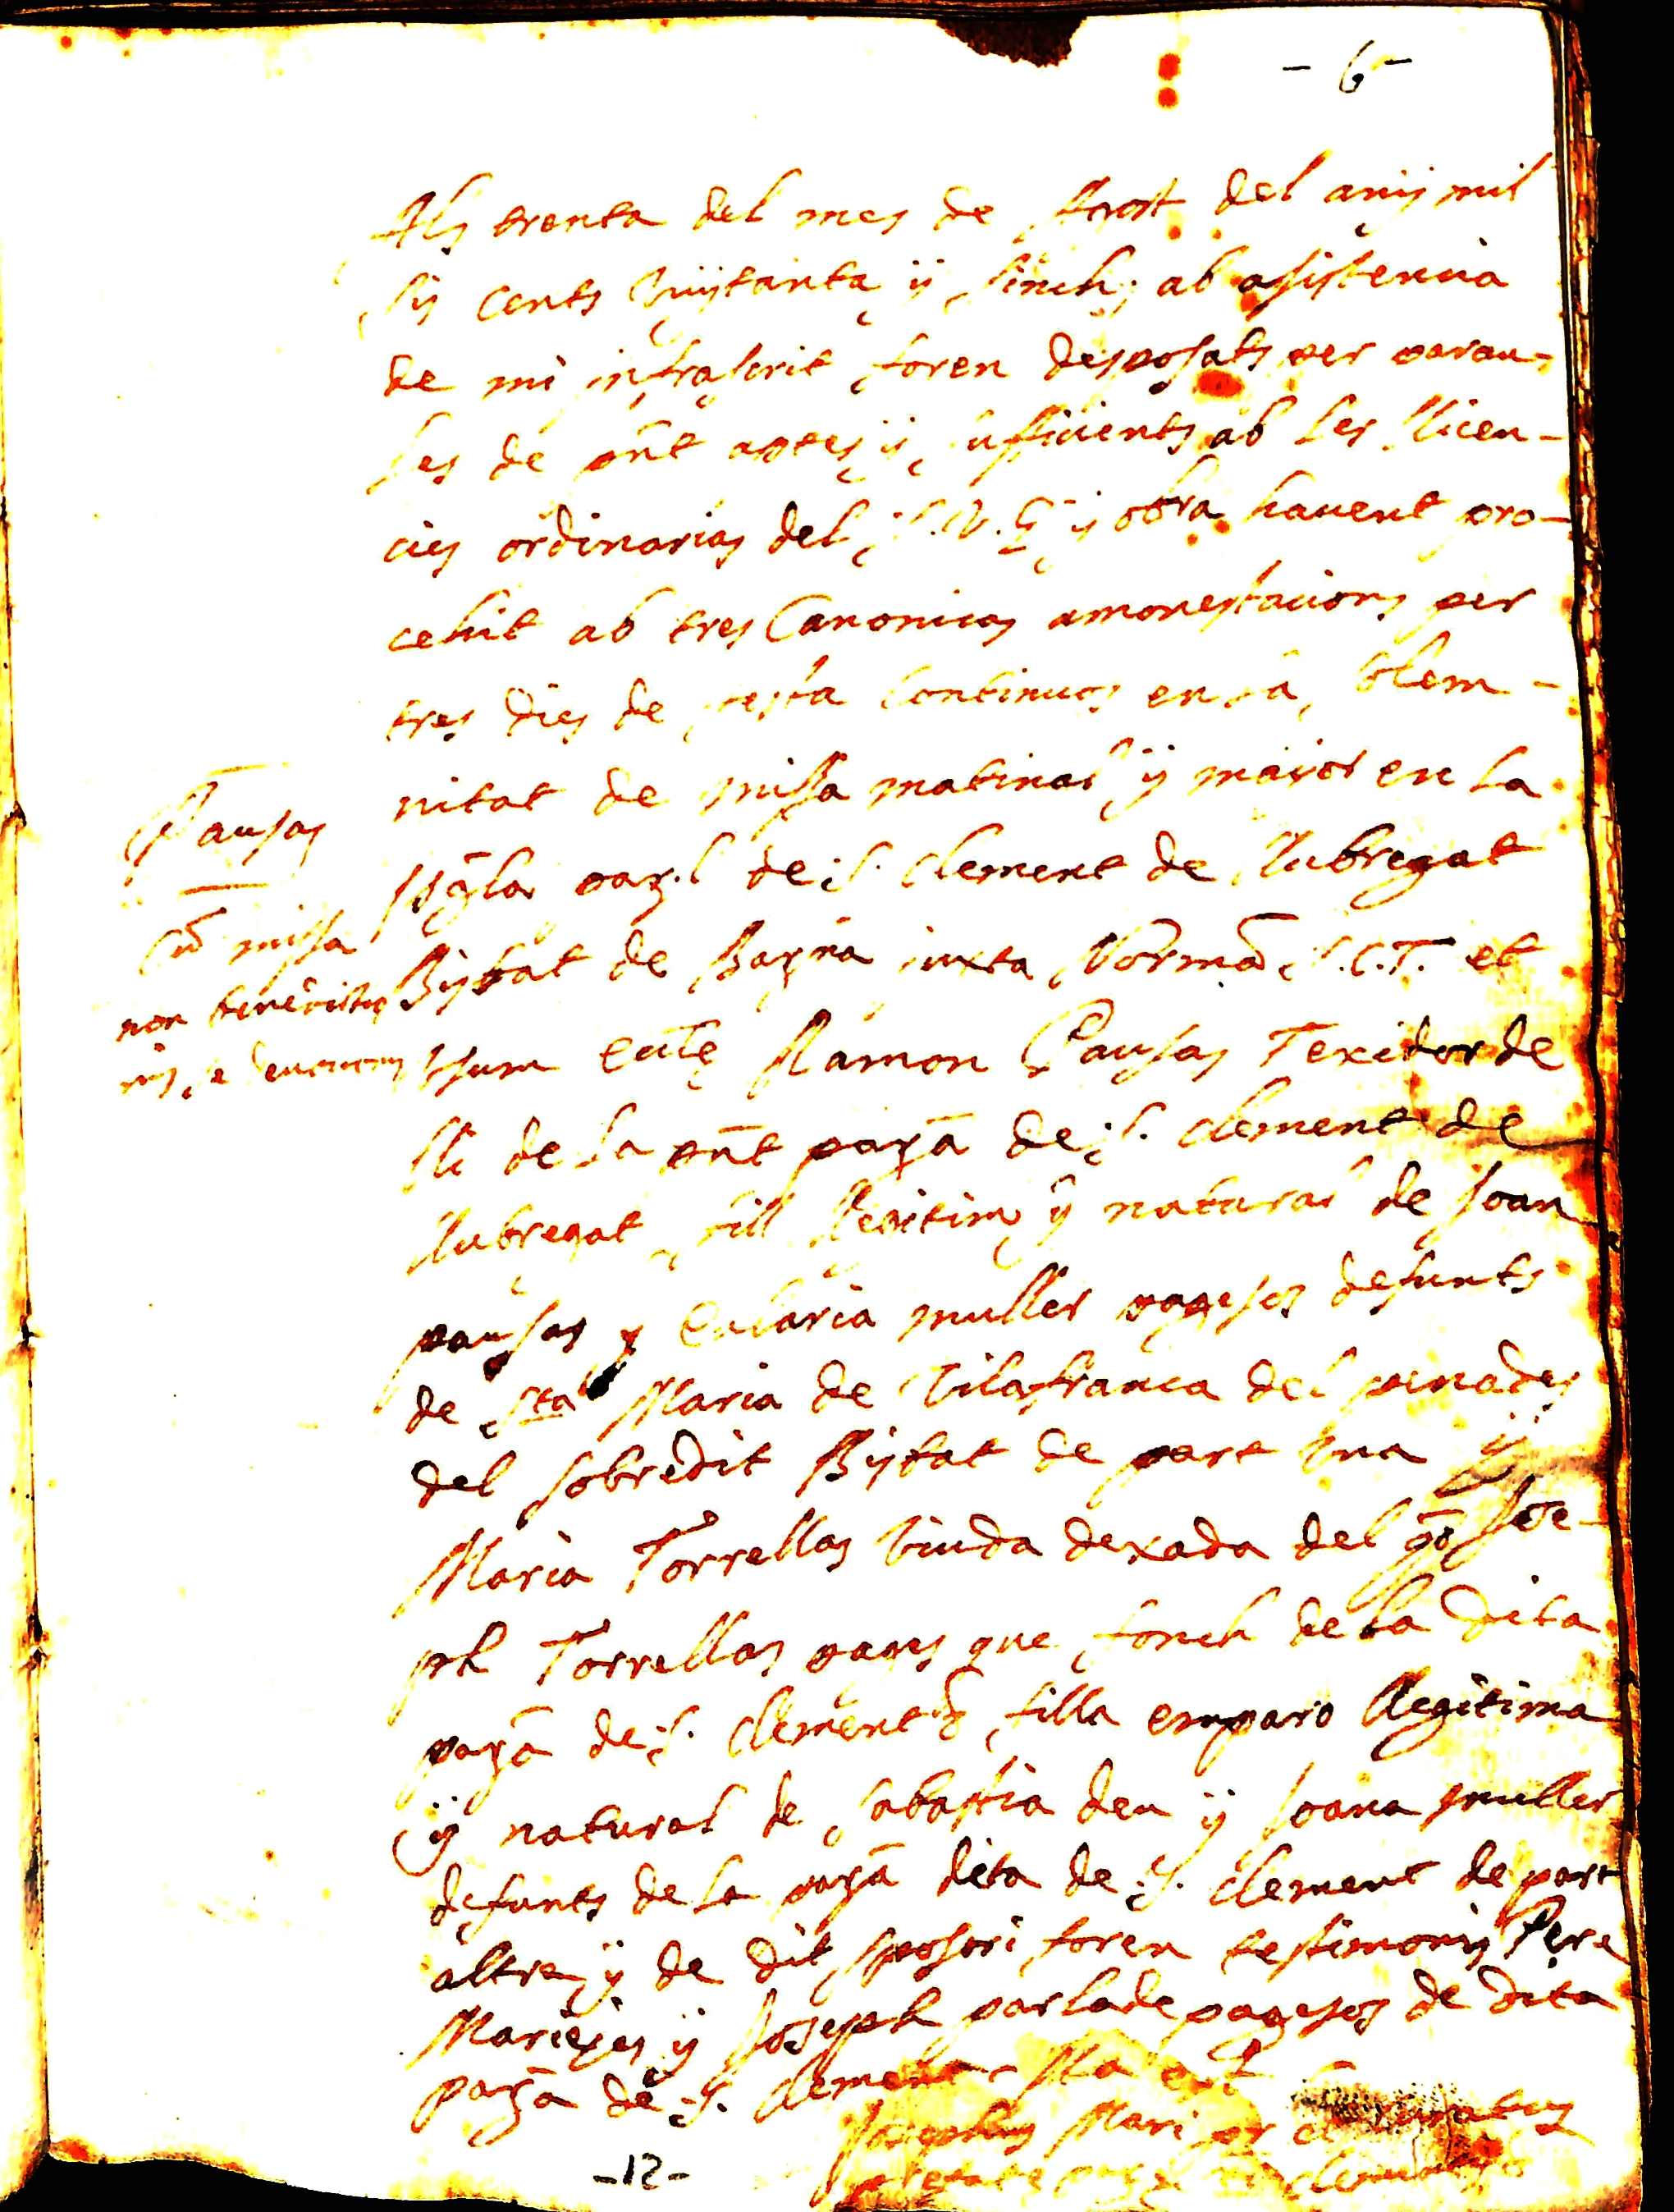 - 6 -
Als trenta del mes de Agost del anÿ mil
sis cents vuÿtanta ÿ sinch, ab asistencia
de mi infrascrit foren desposats per parau-
les de pñt aptes ÿ suficients ab les llicen-
cies ordinarias del S. V. G. ÿ obra havent pro-
cehit ab tres Canonicas amonestacions per
tres dies de festa continuos en la solem-
nitat de missa matinal ÿ maior en la
Pausas
Iglã de S. Clement de Llubregat
Cũ missa
Bisbat de Barña iuxta Normã S.C.T. et
non
Ramon Pausas Texidor de
lli de la pñt parã de S. Clement de
Llubregat fill llegitim ÿ natural de Joan
pausas y Eularia muller pagesos defunts
de Sta Maria de Vilafranca del penades
del sobredit Bisbat de part una ÿ
Maria Torrellas viuda dexada del qõ Jose-
ph Torrellas pages que fonch de la dita
parã de S. Clement filla emparo llegitima
ÿ natural de Sabastia deu ÿ Joana muller
defunts de la parã dita de S. Clement de part
altra ÿ de dit sposori foren testimonis Pere
ÿ Joseph parlade pagesos de dita
parã de S. Clement Ita est
Josephus Mari
-12-